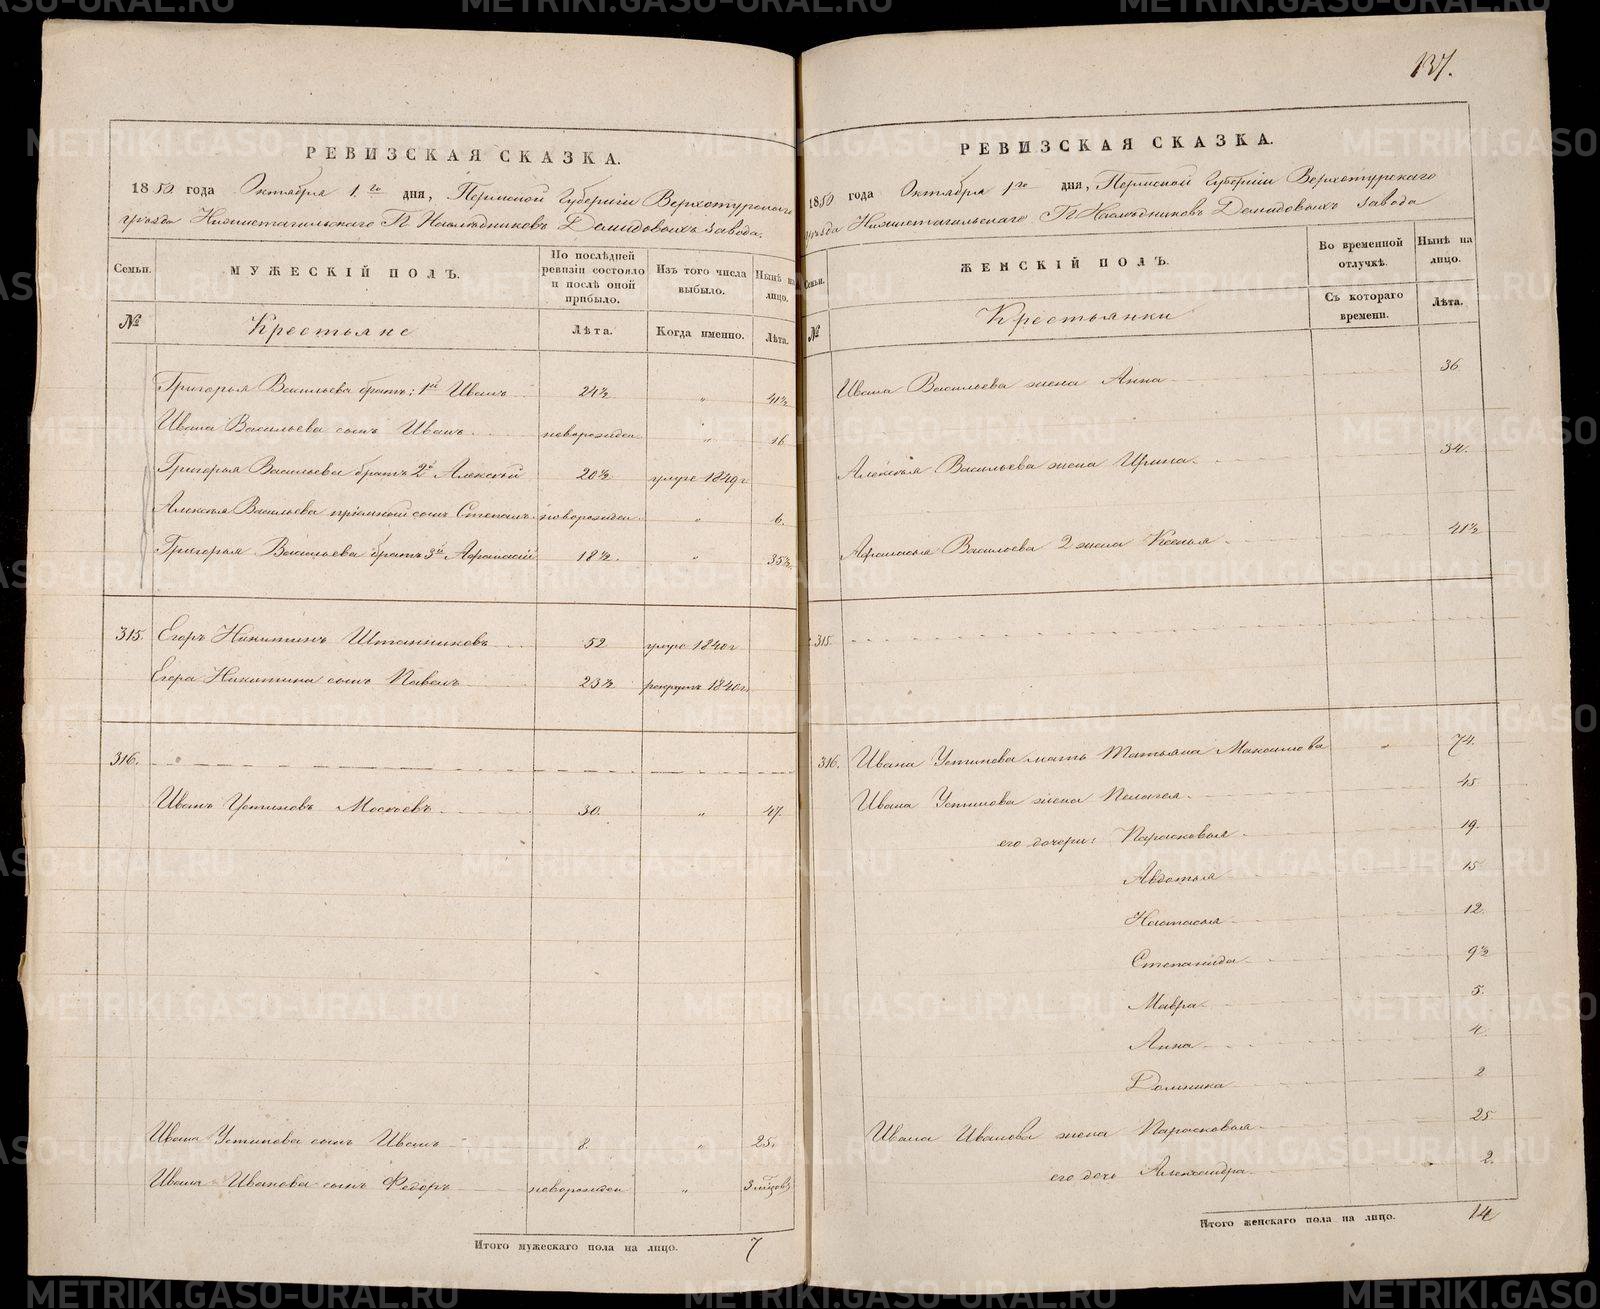 137.
РЕВИЗСКАЯ СКАЗКА.
1850 года Октября 1го дня, Пермской Губерніи Верхотурскаго
уѣзда Нижнетагильскаго Гг Наслѣдниковъ Демидовыхъ завода.
Семьи. МУЖЕСКІЙ ПОЛЪ. По послѣдней ревизіи состояло и послѣ оной прибыло. Изъ того числа выбыло. Нынѣ на лицо.
№ Крестьяне Лѣта. Когда именно. Лѣта.
Григорья Васильева братья: 1й Иванъ 24½ " 41½
Ивана Васильева сынъ Иванъ новорожден " 16
Григорья Васильева братъ 2й Алексѣй 20½ умре 1849г
Алексѣя Васильева пріемный сынъ Степанъ новорожден " 6.
Григорья Васильева братъ 3й Афанасій 18½ " 35½
315. Егоръ Никитинъ Штанниковъ 52 умре 1840г
Егора Никитина сынъ Павелъ 23½ рекрутъ 1840г
316.
Иванъ Устиновъ 30. " 47.
Ивана Устинова сынъ Иванъ 8. " 25.
Ивана Иванова сынъ Федоръ новорожден " 3 мѣсов
Итого мужескаго пола на лицо. 7
РЕВИЗСКАЯ СКАЗКА.
1850 года Октября 1го дня, Пермской Губерніи Верхотурскаго
уѣзда Нижнетагильскаго Гг Наслѣдниковъ Демидовыхъ завода
Семьи. ЖЕНСКІЙ ПОЛЪ. Во временной отлучкѣ. Нынѣ на лицо.
№ Крестьянки Съ котораго времени. Лѣта.
Ивана Васильева жена Анна 36
Алексѣя Васильева жена Ирина 34.
Афанасья Васильева 2 жена Ксенья 41½
315.
316. Ивана Устинова мать Татьяна Максимова " 74.
Ивана Устинова жена Пелагея 45
его дочери: Парасковья 19.
Авдотья 15
Настасья 12.
Степанида 9½
Мавра 5.
Анна 4.
Домника 2
Ивана Иванова жена Парасковья 25
его дочь Александра 2.
Итого женскаго пола на лицо. 14
METRIKI.GASO-URAL.RU